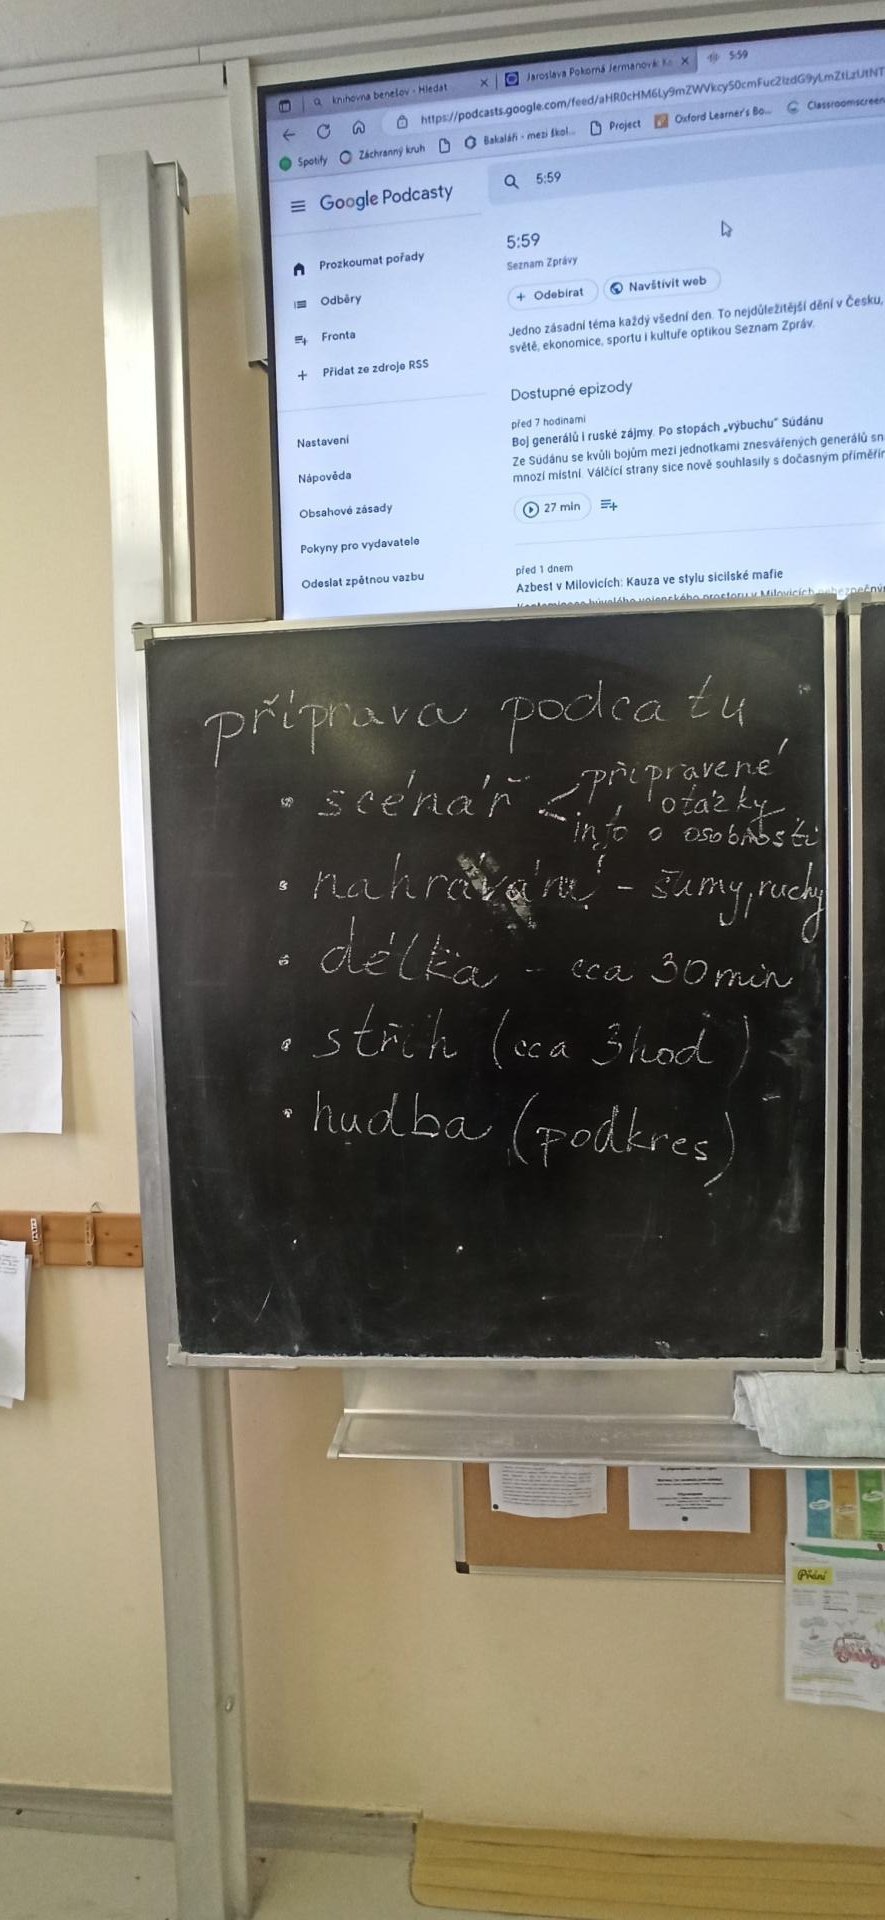 knihovna benešov - Hledat
Jaroslava Pokorná Jermanová: Ko
5:59
https://podcasts.google.com/feed/
Spotify
Záchranný kruh
Bakaláři - mezi škol...
Project
Oxford Learner's Bo...
Classroomscreen
Google Podcasty
5:59
Prozkoumat pořady
Odběry
Fronta
Přidat ze zdroje RSS
Nastavení
Nápověda
Obsahové zásady
Pokyny pro vydavatele
Odeslat zpětnou vazbu
5:59
Seznam Zprávy
+ Odebírat
Navštívit web
Jedno zásadní téma každý všední den. To nejdůležitější dění v Česku,
světě, ekonomice, sportu i kultuře optikou Seznam Zpráv.
Dostupné epizody
před 7 hodinami
Boj generálů i ruské zájmy. Po stopách „výbuchu“ Súdánu
Ze Súdánu se kvůli bojům mezi jednotkami znesvářených generálů sn
mnozí místní. Válčící strany sice nově souhlasily s dočasným příměřím
27 min
před 1 dnem
Azbest v Milovicích: Kauza ve stylu sicilské mafie
příprava podcatu
• scénář < připravené
otázky
info o osobnosti
• nahrávání - šumy, ruchy
• délka - cca 30 min
• střih (cca 3hod)
• hudba (podkres)
Přání